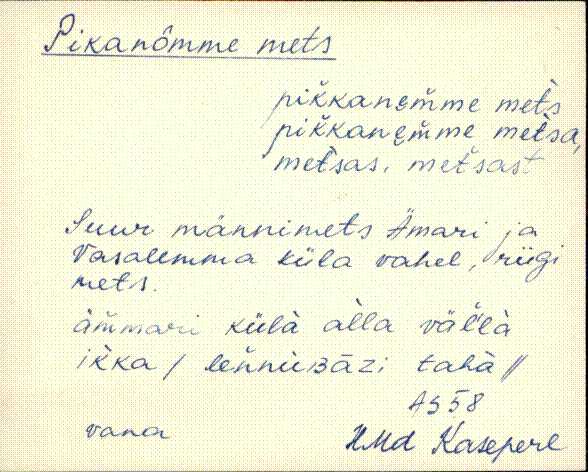 Pikanõmme mets
pik̆kanem̆me met̀s
pik̆kanem̆me met̀sa,
met̀sas. met̀sast
Suur männimets Ämari ja
Vasalemma küla vahel, riigi
mets.
äm̆mari külà àlla väl̆là
ik̀ka / len̆nuʙāzi tahà //
AS 58
vana HMd Kasepere